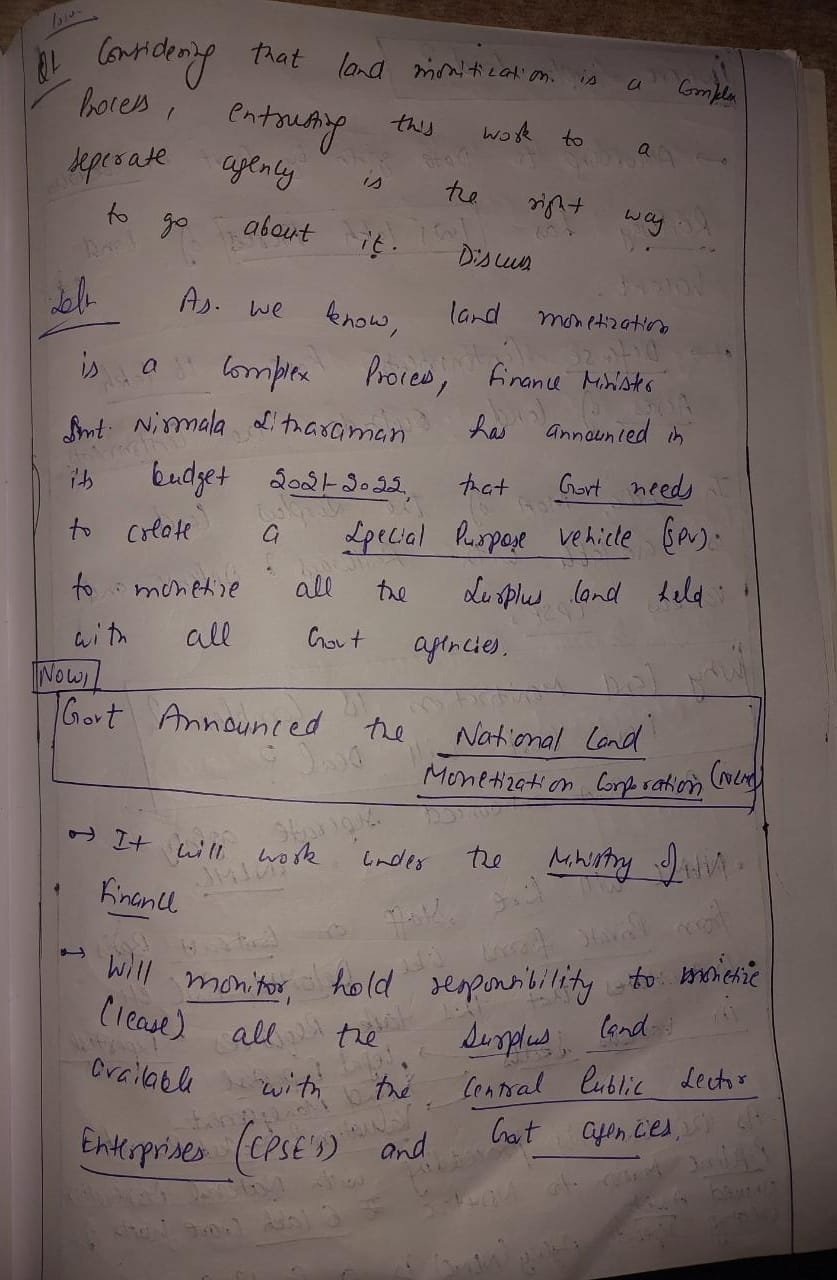 Q1 Considering that land monitication is a Complex
Process, entrusting this work to a
seperate agency is the right way
to go about it. Discuss
Soln As. we know, land monetization
is a Complex Process, Finance Minister
Smt. Nirmala Sitharaman has announced in
its budget 2021-2022, that Govt needs
to create a Special Purpose vehicle (SPV).
to monetize all the Surplus land held
with all Govt agencies.
Now,
Govt Announced the National Land
Monetization Corporation (NLMC)
→ It will work under the Ministry of
Finance
→ Will monitor, hold responsibility to monetize
(lease) all the Surplus land
available with the Central Public Sector
Enterprises (CPSE's) and Govt agencies.